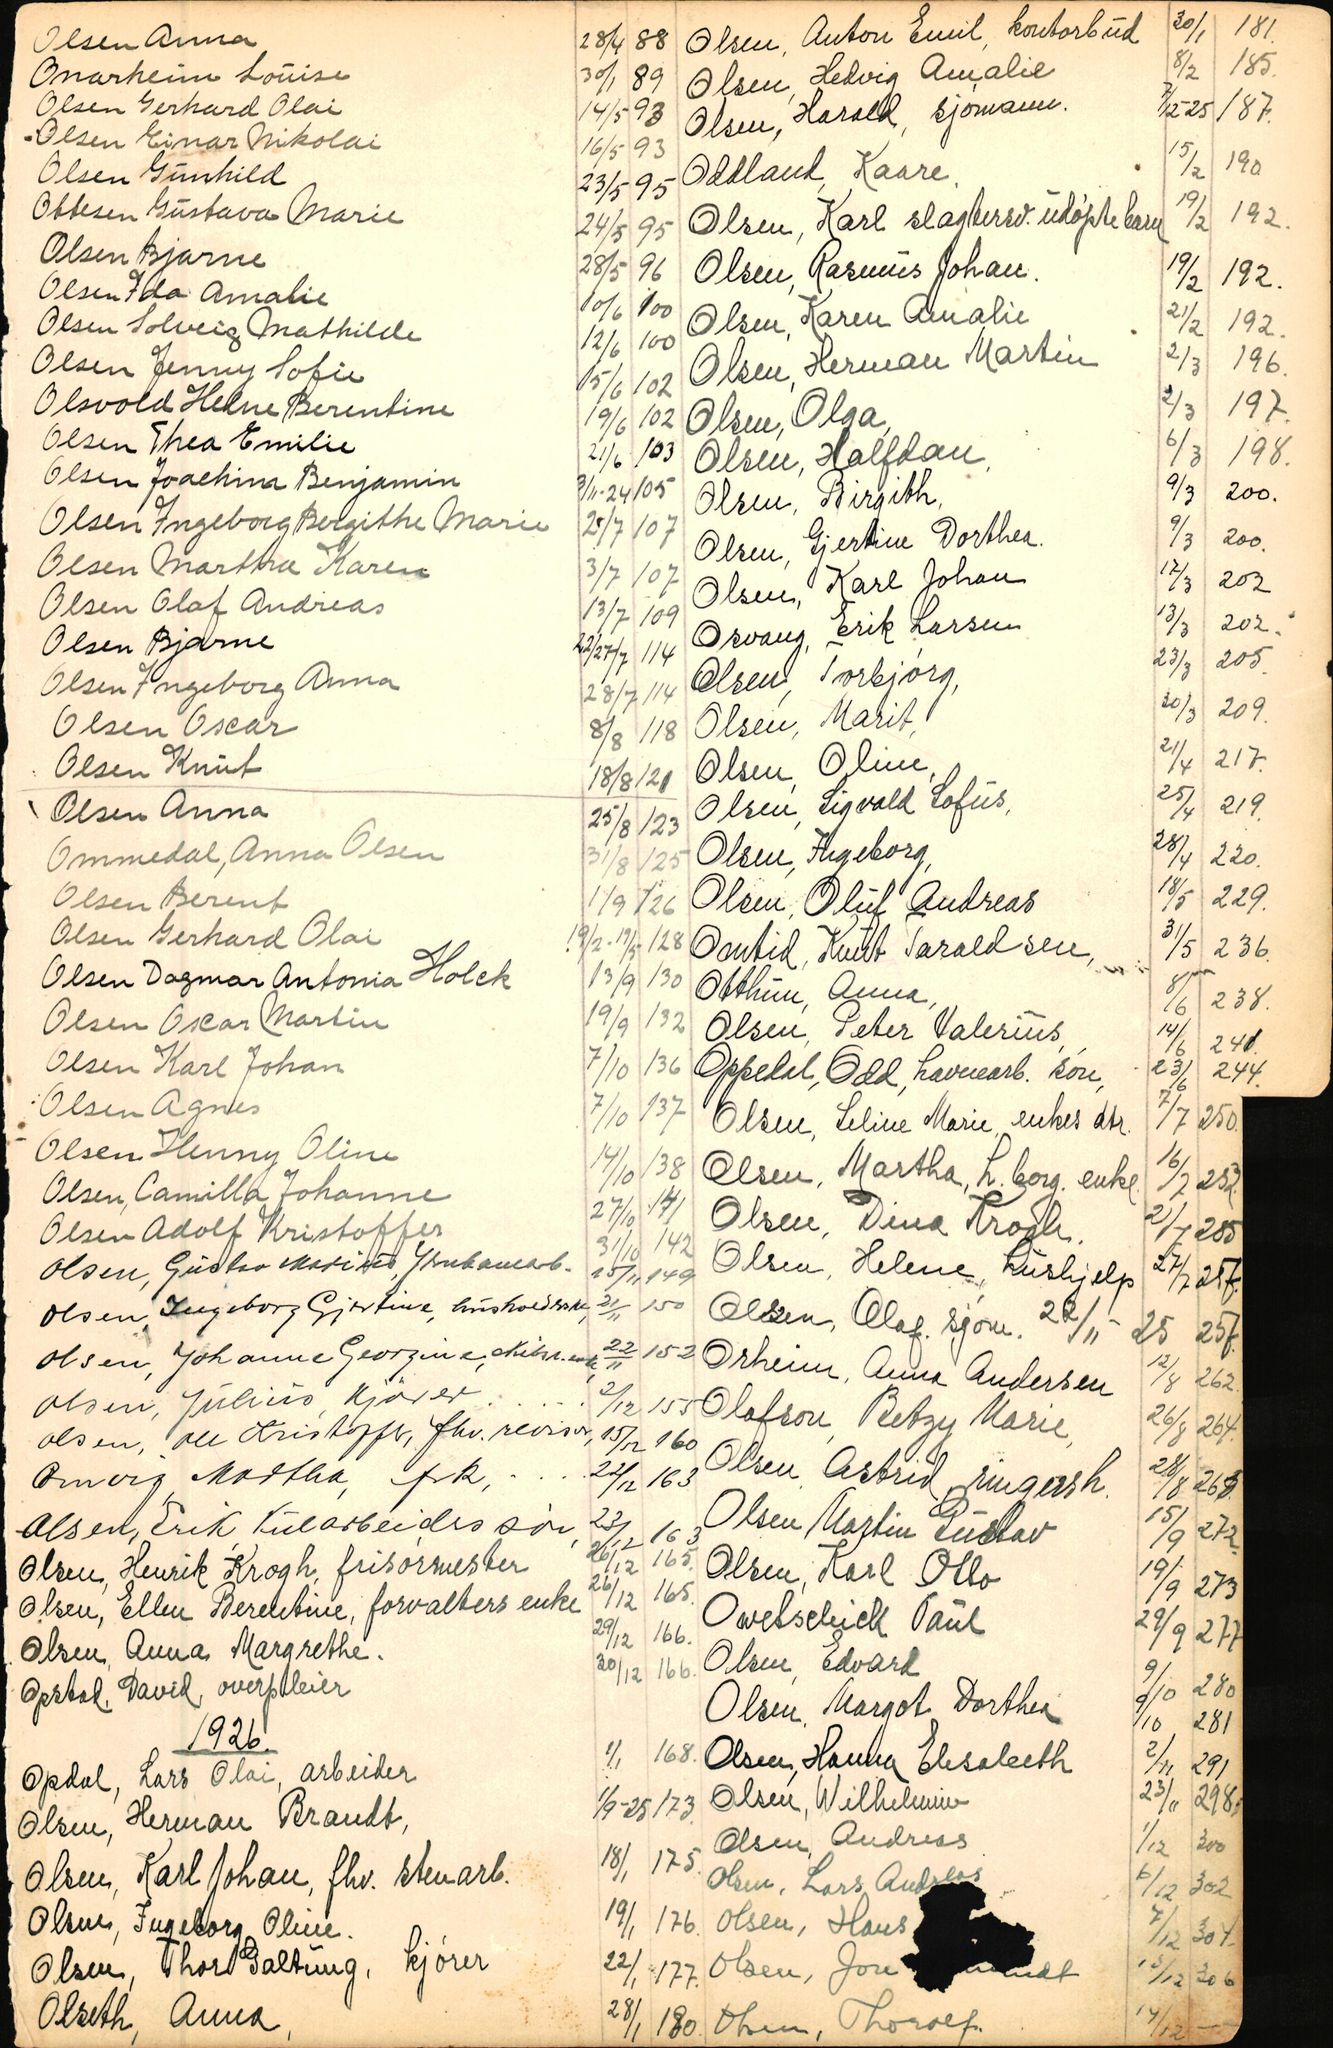 Olsen Anna 28/4 88
Onarheim Louise 30/1 89
Olsen Gerhard Olai 14/5 93
Olsen Einar Nikolai 16/5 93
Olsen Gunhild 23/5 95
Ottesen Gustava Marie 24/5 95
Olsen Bjarne 28/5 96
Olsen Ida Amalie 10/6 100
Olsen Solveig Mathilde 12/6 100
Olsen Jenny Sofie 15/6 102
Olsvold Helne Berentine 19/6 102
Olsen Thea Emilie 21/6 103
Olsen Joachim Benjamin 3/11-24 105
Olsen Ingeborg Bergithe Marie 25/7 107
Olsen Martha Karen 3/7 107
Olsen Olaf Andreas 13/7 109
Olsen Bjarne 22/27/7 114
Olsen Ingeborg Anna 28/7 114
Olsen Oscar 8/8 118
Olsen Knut 18/8 121
Olsen Anna 25/8 123
Ommedal, Anna Olsen 31/8 125
Olsen Berent 1/9 126
Olsen Gerhard Olai 128
Olsen Dagmar Antonia Holck 13/9 130
Olsen Oscar Martin 19/9 132
Olsen Karl Johan 7/10 136
Olsen Agnes 7/10 137
Olsen Henny Oline 14/10 138
Olsen, Camilla Johanne 27/10 141
Olsen Adolf Kristoffer 31/10 142
Olsen, Gustav 15/11 149
Olsen, Ingeborg Gjertine, 21/11 150
Olsen, Johanne Georgine, 22/11 152
Olsen, Julius, kjører 2/12 155
Olsen, Ole Kristoffer, fhv. revisor, 15/12 160
Omvig, Martha, frk, 22/12 163
Olsen, Erik, kularbeiders søn, 23/12 163
Olsen, Henrik Krogh, frisørmester 26/12 165.
Olsen, Ellen Berentine, forvalters enke 26/12 165.
Olsen, Anna Margrethe. 29/12 166.
Opstal, David, overpleier 30/12 166.
1926.
Opdal, Lars Olai, arbeider 1/1 168.
Olsen, Herman Brandt, 1/9-25 173.
Olsen, Karl Johan, fhv. stenarb. 18/1 175.
Olsen, Ingeborg Oline. 19/1 176.
Olsen, Thor Galtung, kjører 22/1 177.
Olseth, Anna, 28/1 180.
Olsen, Anton Emil, kontorbud 30/1 181.
Olsen, Hedvig Amalie 8/2 185.
Olsen, Harald, sjømann. 7/12-25 187.
Oddland, Kaare. 15/2 190
Olsen, Karl slagtersv. udøpte barn 19/2 192.
Olsen, Rasmus Johan. 19/2 192.
Olsen, Karen Amalie 21/2 192.
Olsen, Herman Martin 2/3 196.
Olsen, Olga, 2/3 197.
Olsen, Halfdan, 6/3 198.
Olsen, Birgith, 9/3 200.
Olsen, Gjertine Dorthea. 9/3 200.
Olsen, Karl Johan 12/3 202
Osvaag, Erik Larsen 13/3 202.
Olsen, Torbjørg, 23/3 205.
Olsen, Marit, 30/3 209.
Olsen, Oline, 21/4 217.
Olsen, Sigvald Sofus, 25/4 219.
Olsen, Ingeborg, 28/4 220.
Olsen, Oluf Andreas 18/5 229.
Omtid, Knut Taraldsen, 31/5 236.
Otthun, Anna, 8/6 238.
Olsen, Peter Valerius, 14/6 241.
Oppedal, Odd, havnearb. søn, 23/6 244.
Olsen, Seline Marie, enkes dtr. 7/7 250.
Olsen, Martha, h.borg. enke 16/7 252.
Olsen, Dina Krogh. 21/7 255
Olsen, Helene, hushjelp 27/7 257.
Olsen, Olaf. sjøm. 22/11 25 257.
Orheim, Anna Andersen 12/8 262.
Olafson, Betzy Marie, 26/8 264.
Olsen, Astrid, ringersh. 28/8 268.
Olsen Martin Gustav 15/9 272.
Olsen, Karl Otto 19/9 273
Owetschick Paul 29/9 277
Olsen, Edvard 9/10 280
Olsen, Margot Dorthea 9/10 281
Olsen, Hanna Elisabeth 2/11 291
Olsen, Wilhelmine 23/11 298.
Olsen, Andreas 1/12 300
Olsen, Lars Andreas 6/12 302
Olsen, Hans 7/12 304.
Olsen, Jon 15/12 306
Olsen, Thoralf. 14/12 —